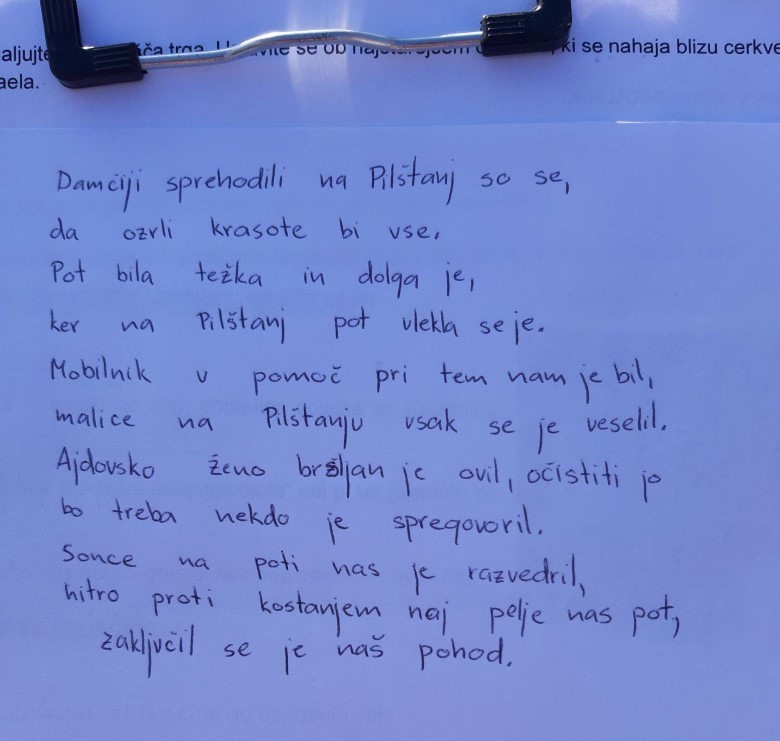 aljujte ča trga. se ob ki se nahaja blizu cerkve
aela.
Damčiji sprehodili na Pilštanj so se,
da ozrli krasote bi vse.
Pot bila težka in dolga je,
ker na Pilštanj pot vlekla se je.
Mobilnik v pomoč pri tem nam je bil,
malice na Pilštanju vsak se je veselil.
Ajdovsko ženo bršljan je ovil, očistiti jo
bo treba nekdo je spregovoril.
Sonce na poti nas je razvedril,
hitro proti kostanjem naj pelje nas pot,
zaključil se je naš pohod.